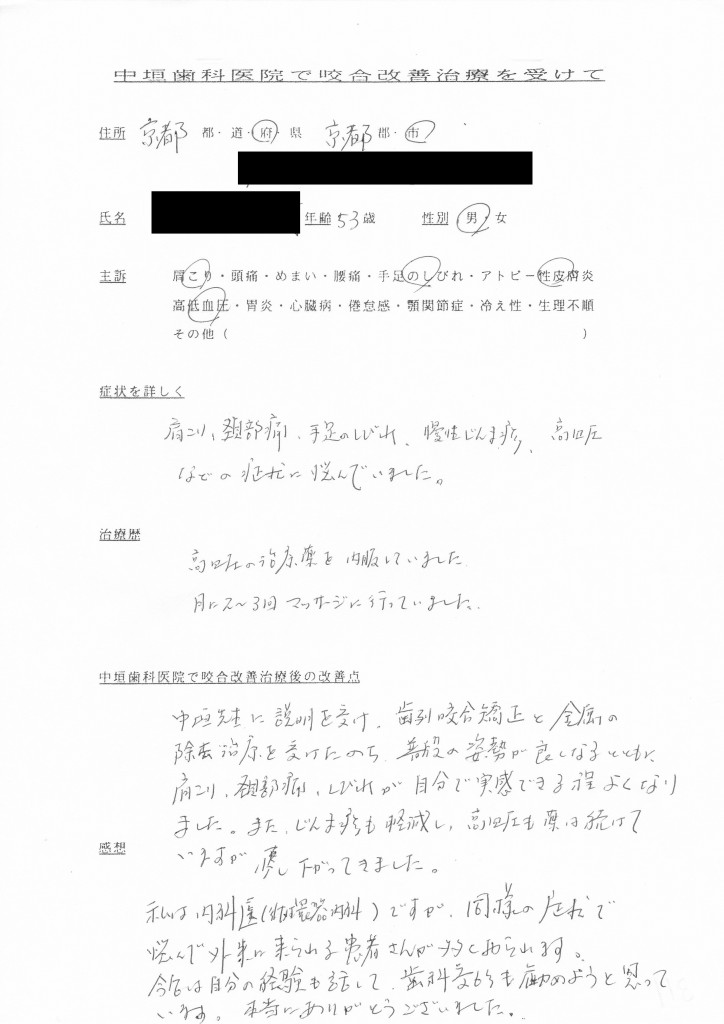 中垣歯科医院で咬合改善治療を受けて
住所 京都 都・道・府・県 京都 郡・市
氏名 年齢 53歳 性別 男・女
主訴 肩こり・頭痛・めまい・腰痛・手足のしびれ・アトピー性皮膚炎
高低血圧・胃炎・心臓病・倦怠感・顎関節症・冷え性・生理不順
その他( )
症状を詳しく
肩こり、頚部痛、手足のしびれ、慢性じんま疹、高血圧
などの症状に悩んでいました。
治療歴
高血圧の治療薬を内服していました
月に2～3回マッサージに行っていました。
中垣歯科医院で咬合改善治療後の改善点
中垣先生に説明を受け、歯列咬合矯正と金属の
除去治療を受けたのち、普段の姿勢が良くなるとともに
肩こり、頚部痛、しびれが自分で実感できる程よくなり
ました。また、じんま疹も軽減し、高血圧も薬は続けて
いますが 下がってきました。
感想
私は内科医(循環器内科)ですが、同様の症状で
悩んで外来に来られる患者さんが多くおられます。
今后は自分の経験も話して、歯科受診も勧めようと思って
います。本当にありがとうございました。